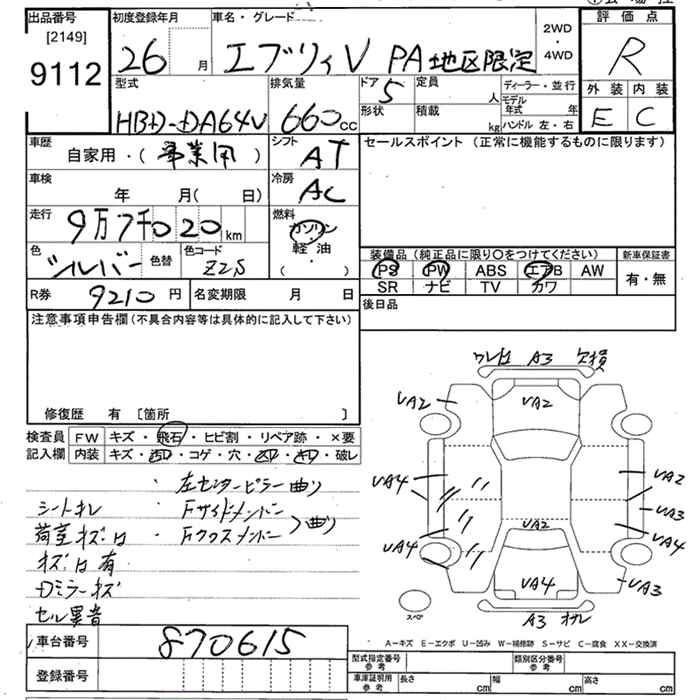 出品番号 初度登録年月 車名・グレード 2WD・4WD 評価点
[2149]
9112 26 月 エブリィV PA地区限定 R
型式 排気量 ドア 5 定員 人 ディーラー・並行
モデル年式 年
外装 内装
HBD-DA64V 660cc 形状 積載 kg ハンドル 左・右 E C
車歴 自家用・(事業用) シフト AT セールスポイント(正常に機能するものに限ります)
車検 年 月(日) 冷房 AC
走行 9万7千020km 燃料 ガソリン・軽油・( )
色 シルバー 色替 色コード Z2S
装備品(純正品に限り〇をつけてください) 新車保証書
PS PW ABS エアB AW 有・無
SR ナビ TV カワ
R券 9210円 名変期限 月 日 後日品
注意事項申告欄(不具合内容等は具体的に記入して下さい)
修復歴 有 [箇所 ]
検査員 FW キズ・飛石・ヒビ割・リペア跡・×要
記入欄 内装 キズ・汚レ・コゲ・穴・・・破レ
・左センターピラー曲り
シートオレ ・Fサイドメンバー
荷室キズ凹 ・Fクロスメンバー 曲り
キズ凹有
Dミラーキズ
セル異音
A3 欠損
UA2 UA2
UA4 UA2
UA3
UA4 UA2 UA4
UA4 UA3
スペア A3
A-キズ E-エクボ U-凹み W-補修跡 S-サビ C-腐食 XX-交換済
車台番号 870615
登録番号
型式指定番号 参考 類別区分番号 参考
車庫証明用 参考 長さ cm 幅 cm 高さ cm